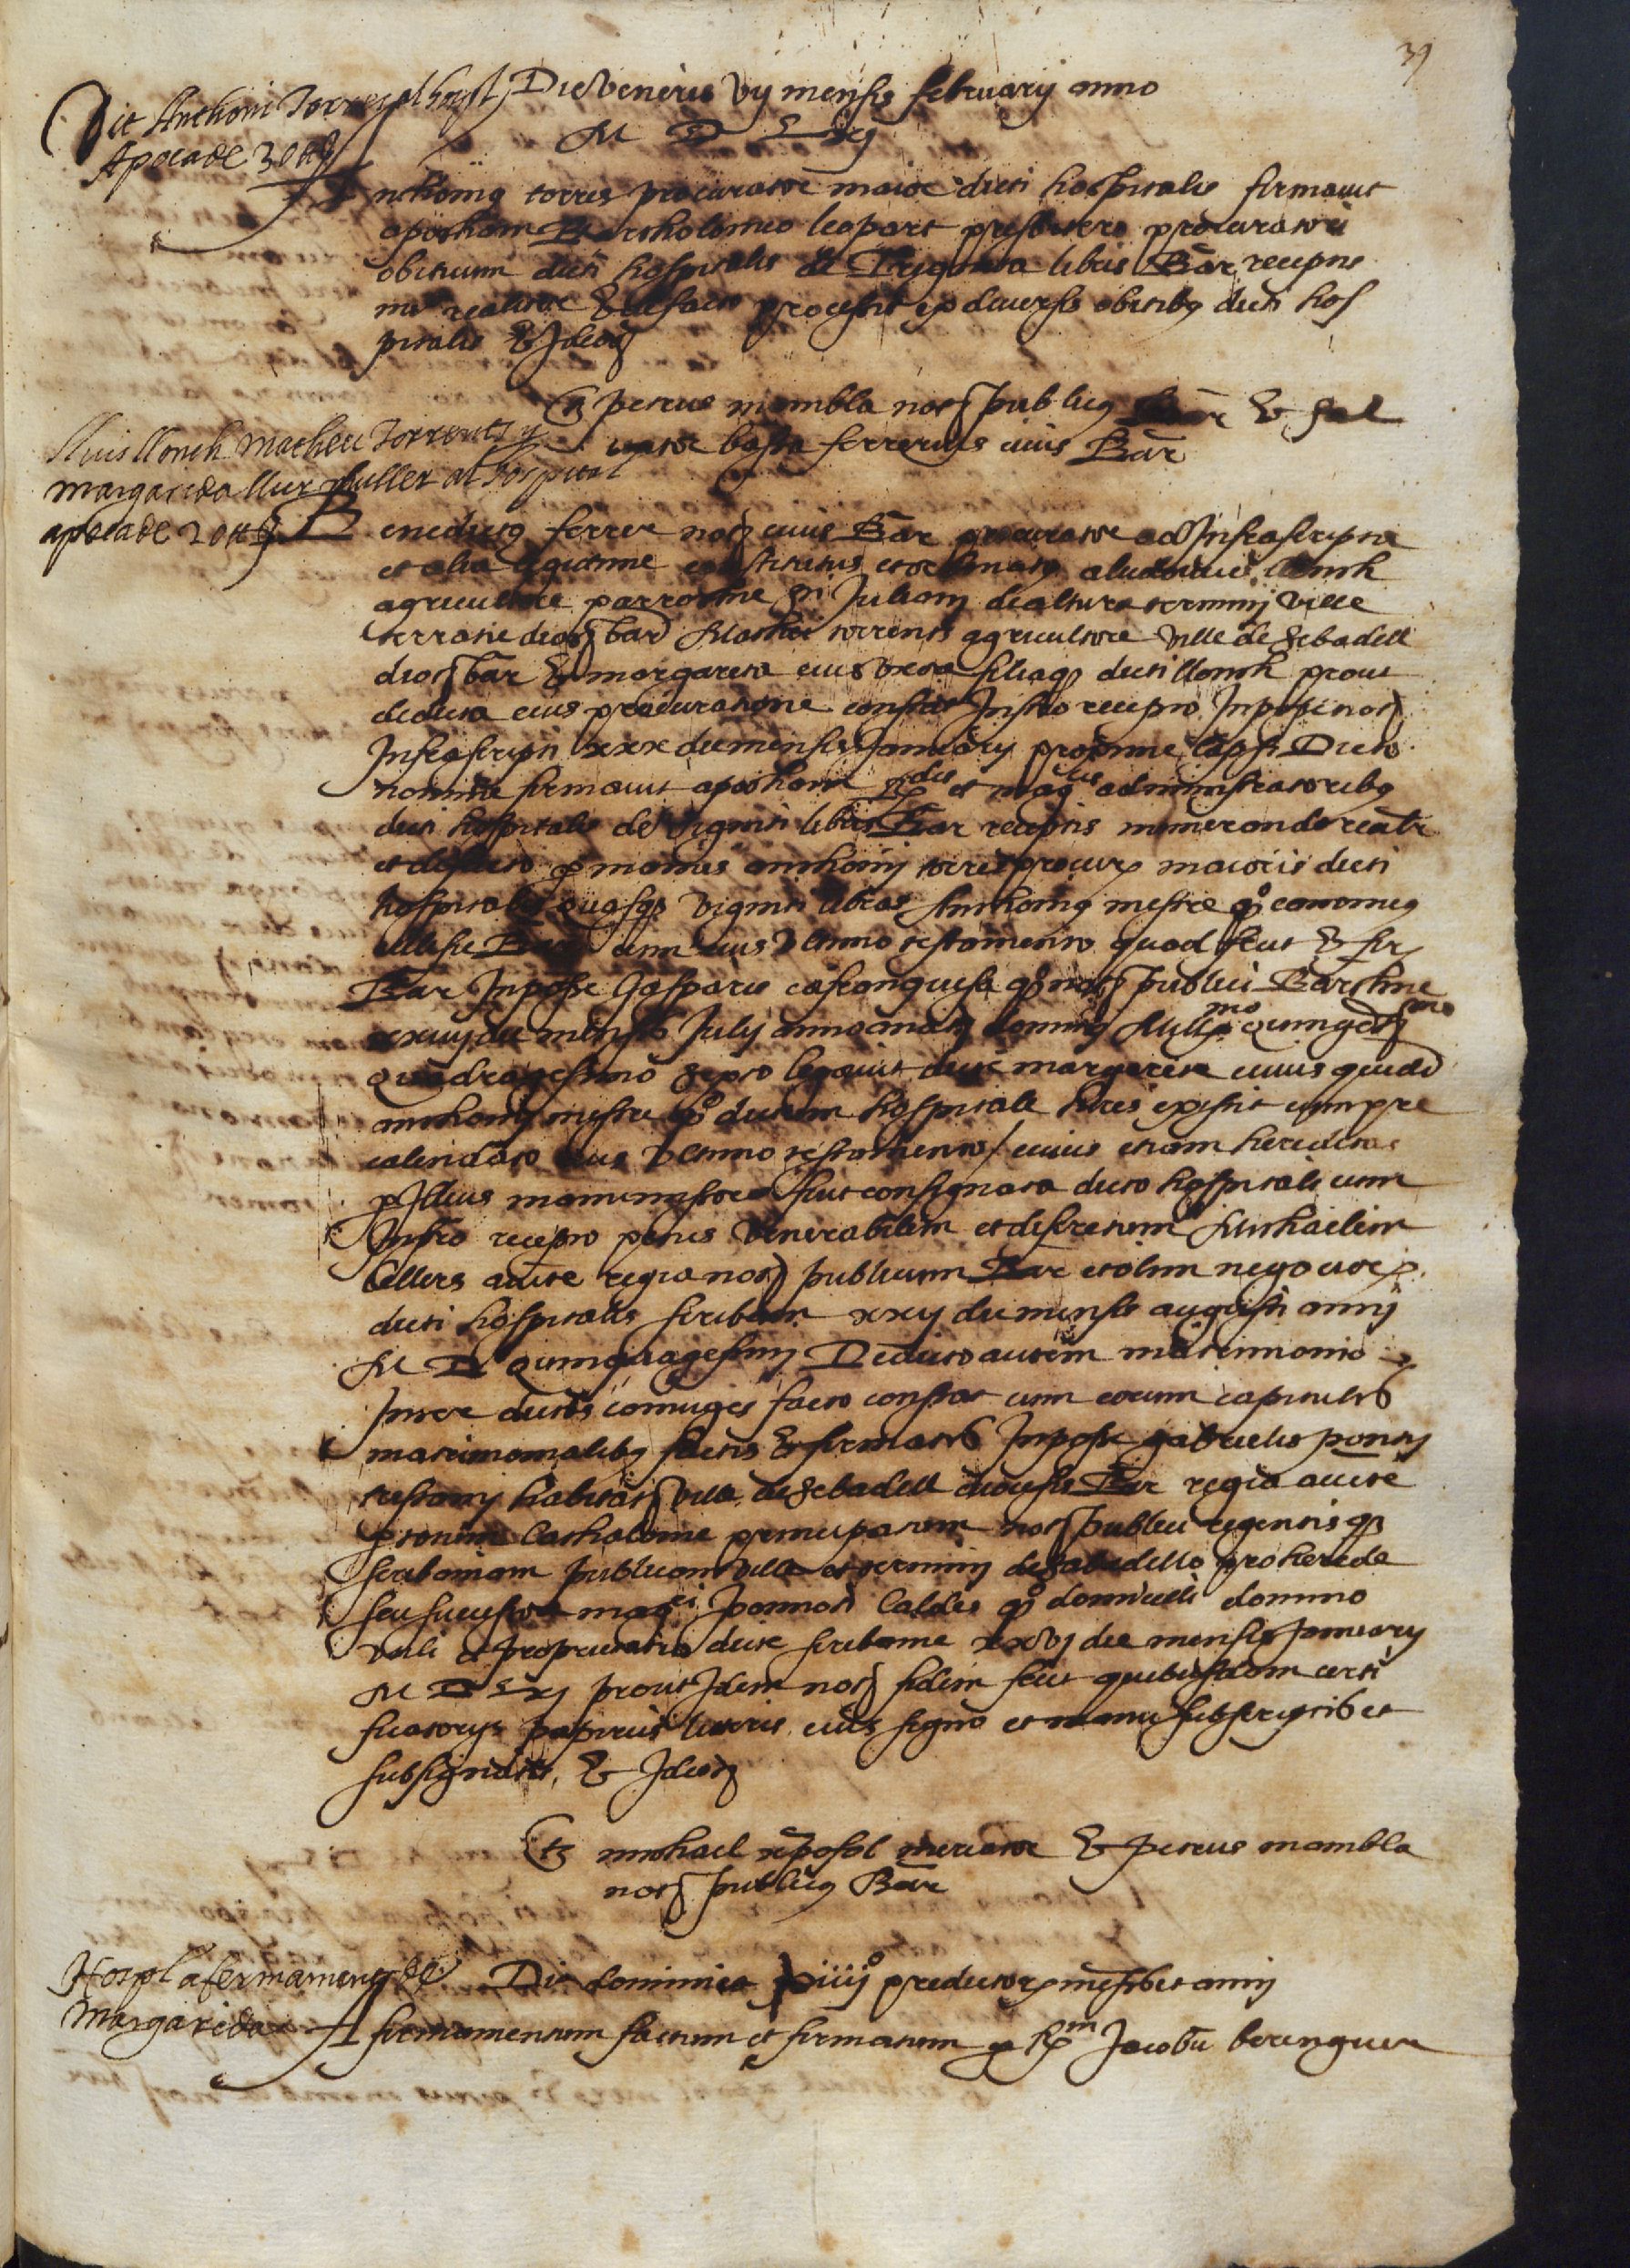 39
Dit Anthoni Torres al hospl
Apoca de 30 ₶
Die Veneris vij mensis februarij anno
M D Lxj
Anthonius torres procurator maior dicti hospitalis firmavit
apocham Bartholomeo leopart presbitero procuratori
obituum dicti hospitalis de Triginta libris Bar recepis
realiter & de facto processit ex diversis obitibus dicti hos
pitalis & Ideo
Tes petrus mambla not publicus Bar & Sal
vator bosta ferrerius civis Bar
Lluis llonch Matheu Torrents y
margarida llur muller al hospital
apoca de 20 ₶
Benedictus ferrer not civis Bar procurator ad Infrascripta
et alia legitime constitutus et ordinatus a ludovico llonch
agricultore parrochie sti Juliani de altura termini ville
terracie dioc bar Matheo torrents agricultore ville de Sebadell
dioc bar & margareta eius uxore filiaque dicti llonch prout
de dicta eius procuratione constat Instro recepto In posse not
Infrascripti xxx die mensis January proxime lapsi Dicto
nomine firmavit apocham Rdis et magcis administratoribus
dicti hospitalis de viginti libris Bar receptis numerando realr
et de facto p manus anthonij torres procur maioris dicti
hospitalis quasque viginti libras Anthonius mestre qo economus
ecclesie Bar cum eius ultimo testamento quod fecit & fir
Bar In posse Gasparis çafranquesa qo not publici Barchine
xxiiij die mensis July anno a nat domini Millmo quingetmo
Quadragesimo Septo legavit dicte margarete cuius quidem
anthonij mestre qo dictum hospitale heres existit cum pre
calendato eius ultimo testamento / cuius etiam hereditas
p Illius manumissores fuit consignata dicto hospitali cum
Instro recepto penes Venerabilem et discretum Michaelem
Cellers auctte regia not publicum Bar et olim negocior
dicti hospitalis scribam xxij die mensis augusti anni
M D quinquagesimi De dicto autem matrimonio
Inter dictos coniuges facto constat cum eorum capitulis
matrimonialibus factis & firmatis In posse gabrielis pontij
trestany habitat ville de Sebadell diocesis Bar regia auctte
p totum Cathalonie principatum not publici regentisque
scribaniam publicam ville et termini de Sabadello pro herede
seu successore magci Joannoti Caldes qo domicelli domino
utili et proprietario dicte scribanie xxvj die mensis January
M D Lxj prout Idem not fidem fecit quibusdam certi
ficatorijs papireis litteris eius signo et manu subscriptis et
subsignatis, & Ideo
Tes michael reposol mercator & petrus mambla
not publicus Bar
Hospl afermament de
Margarida
Die dominica viiijo predictor mensis et anni
Afirmamentum factum et firmatum p Rm Jacobu berenguer